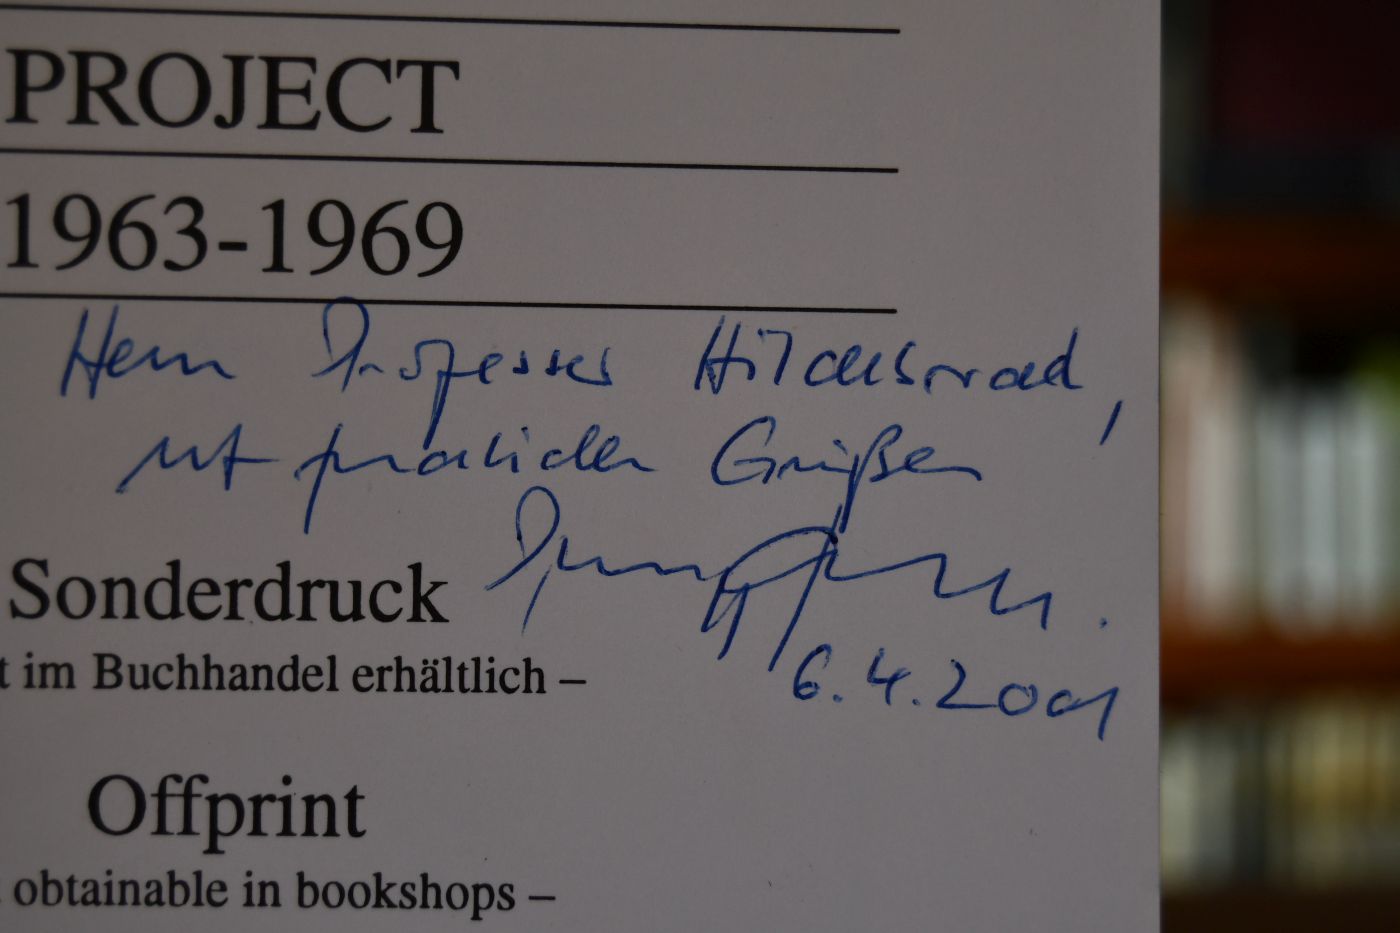 PROJECT
1963-1969
Herrn Professor Hildebrand,
mit freundlichen Grüßen
Sonderdruck
6.4.2001
t im Buchhandel erhältlich –
Offprint
obtainable in bookshops –